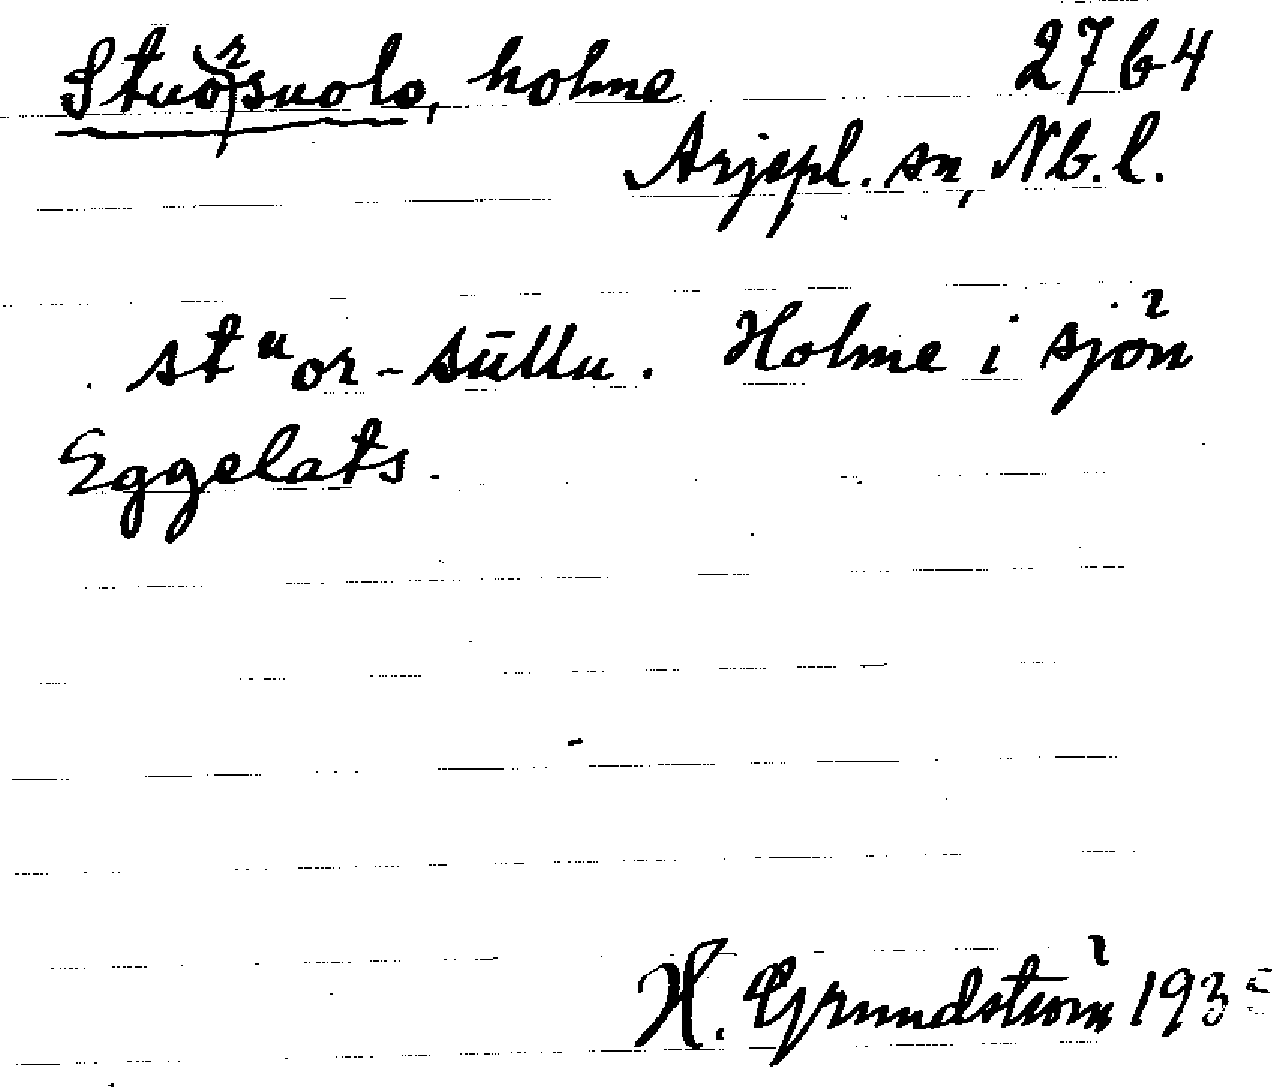 Stuorsuolo, holme 27 b 4
Arjepl. sn, Nb. l.
stᵘor-sūllu. Holme i sjön
Eggelats.
H. Grundström 1935